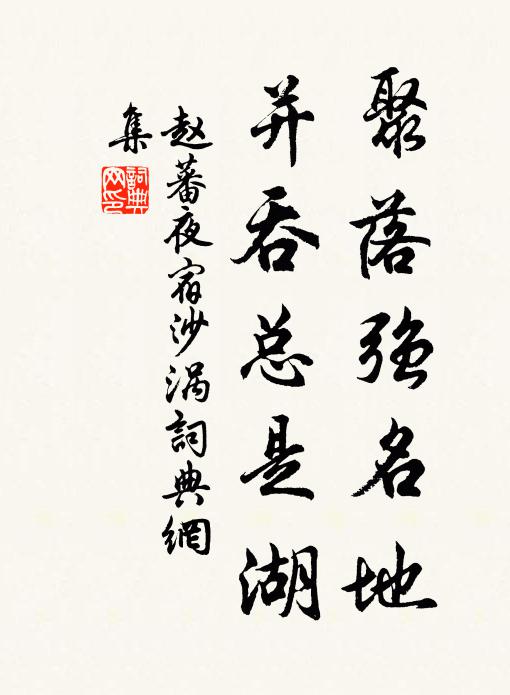 聚落强名地
并吞总是湖
赵蕃夜宿沙涡詞典網
集
詞典网印